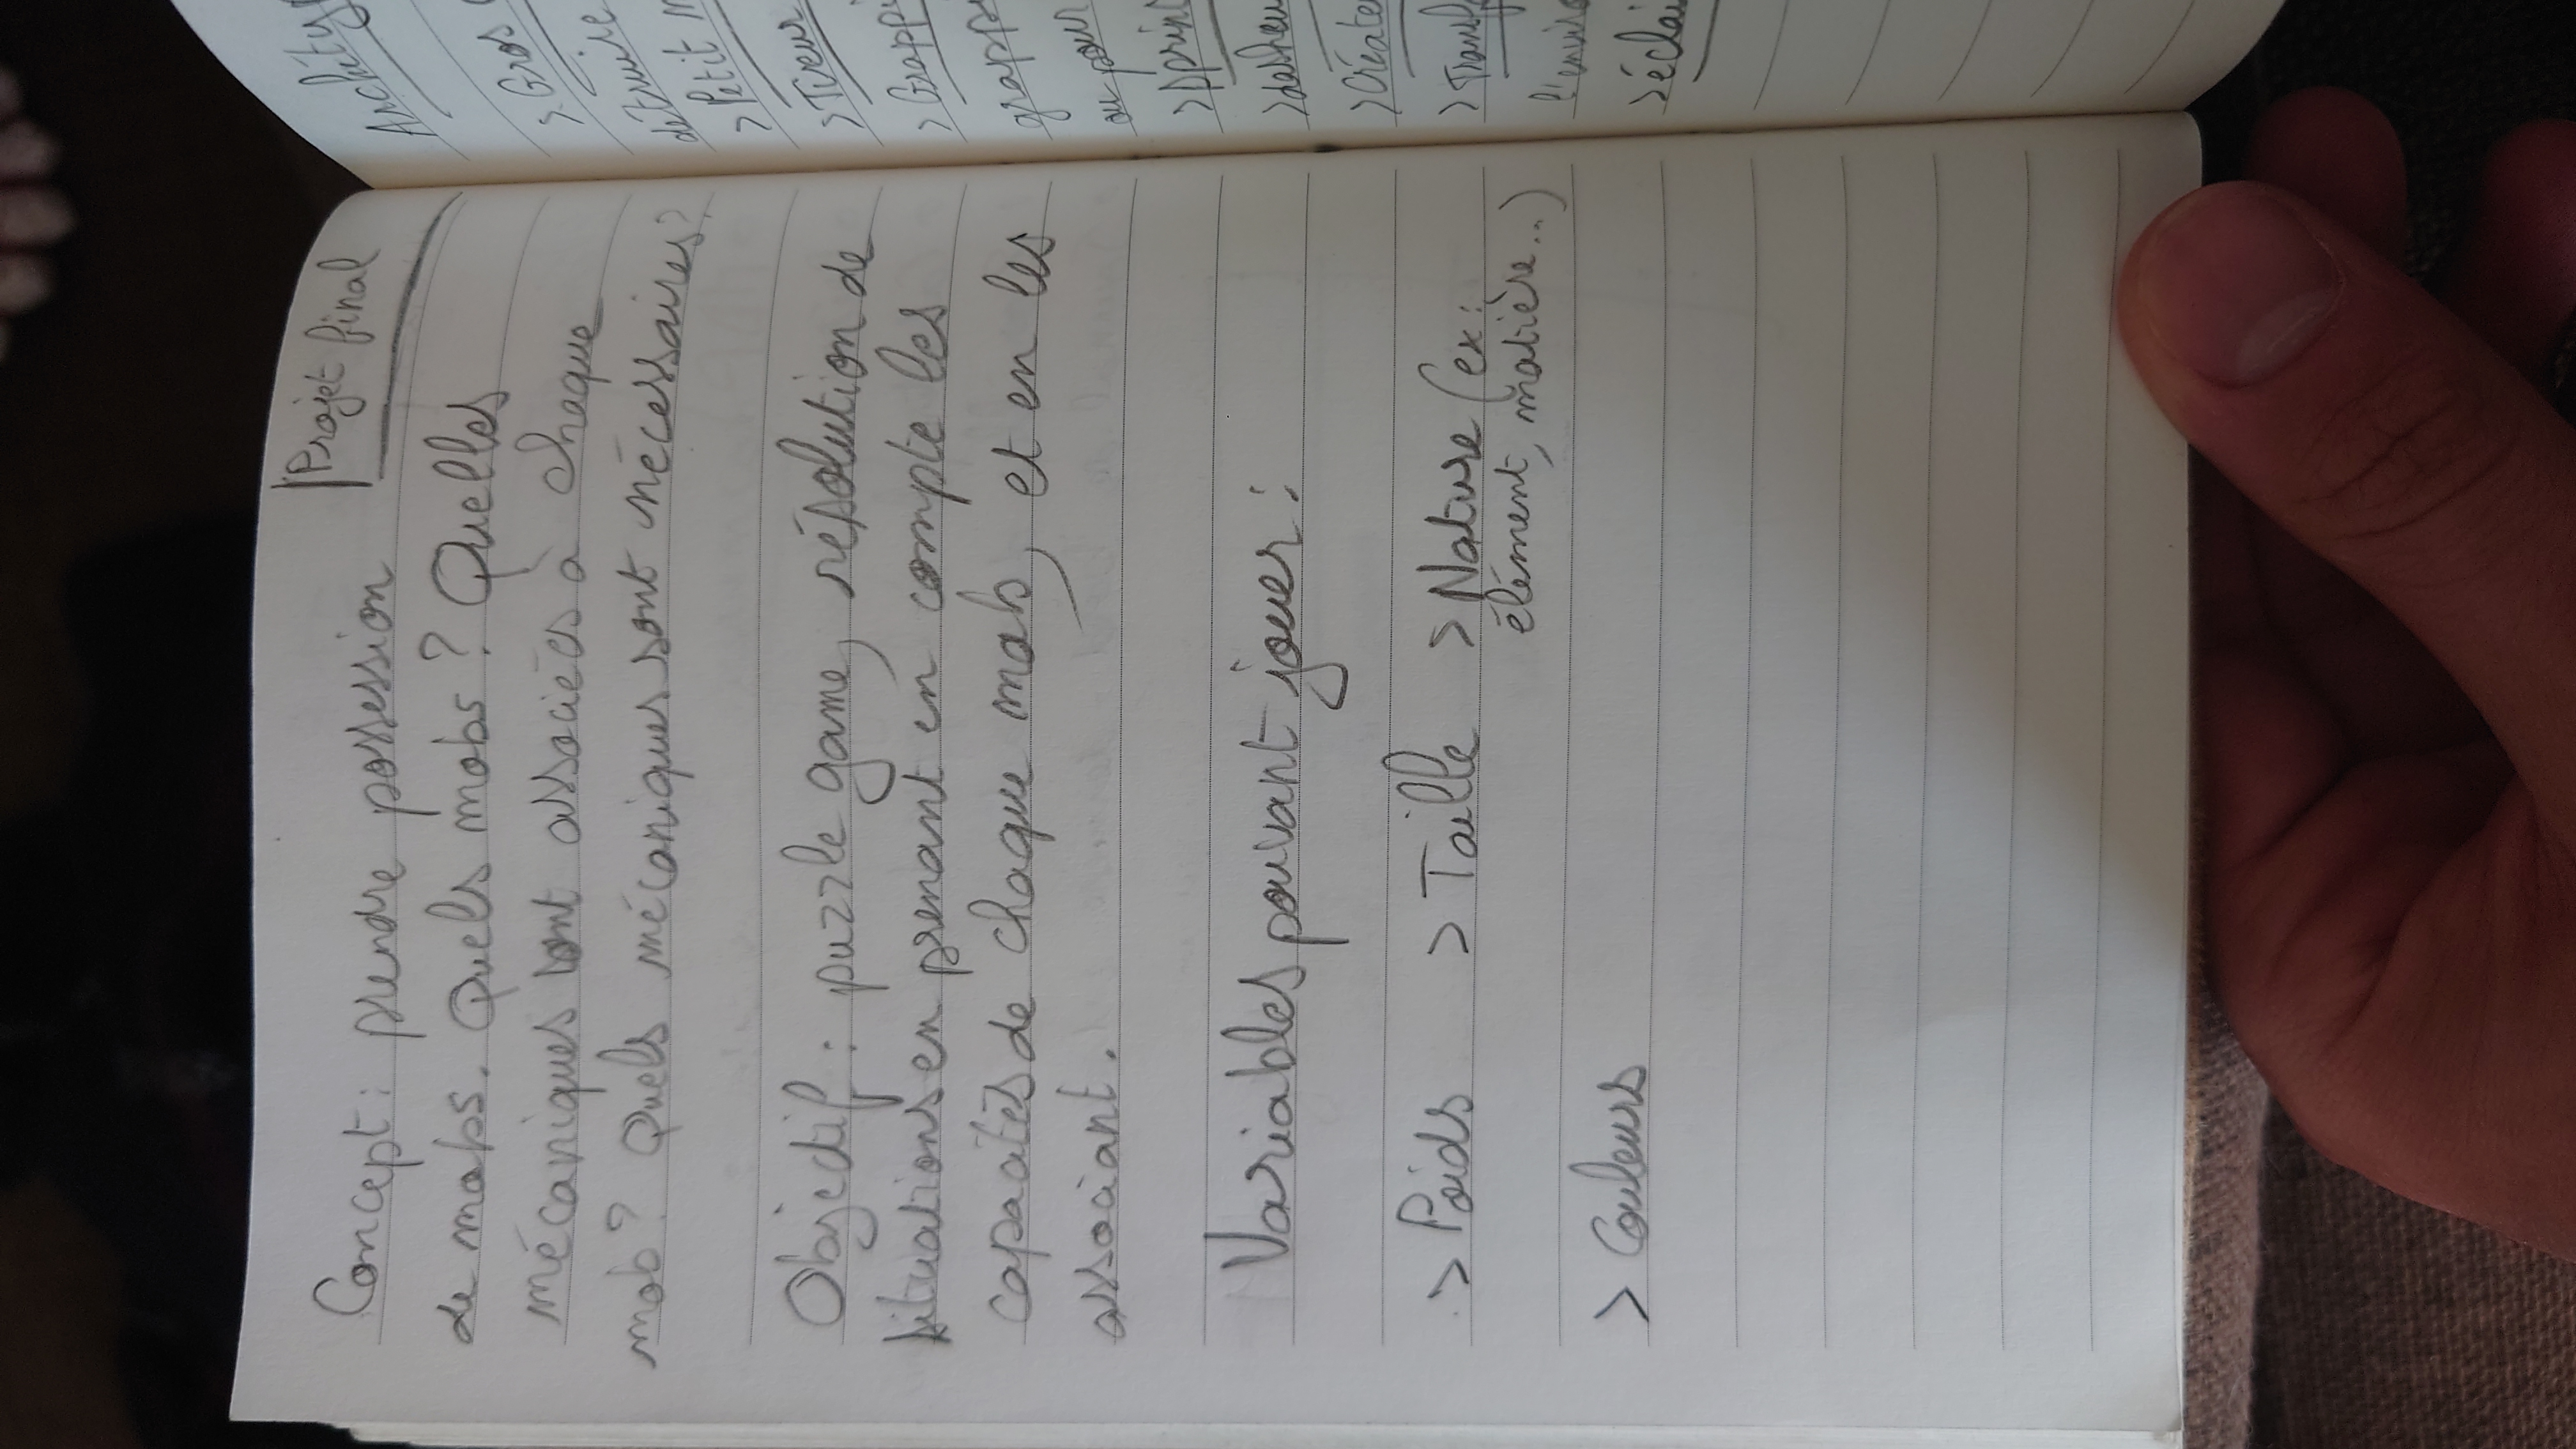 Projet final
Concept : prendre possession
de mobs. Quels mobs ? Quelles
mécaniques sont associées à chaque
mob ? Quels mécaniques sont nécessaires ?
Objectif : puzzle game, résolution de
situations en prenant en compte les
capacités de chaque mob, et en les
associant.
Variables pouvant jouer :
> Poids > Taille > Nature (ex :
élément, matière...)
> Couleurs
> Gros
détruire
> Petit
> Tireur
ou pour